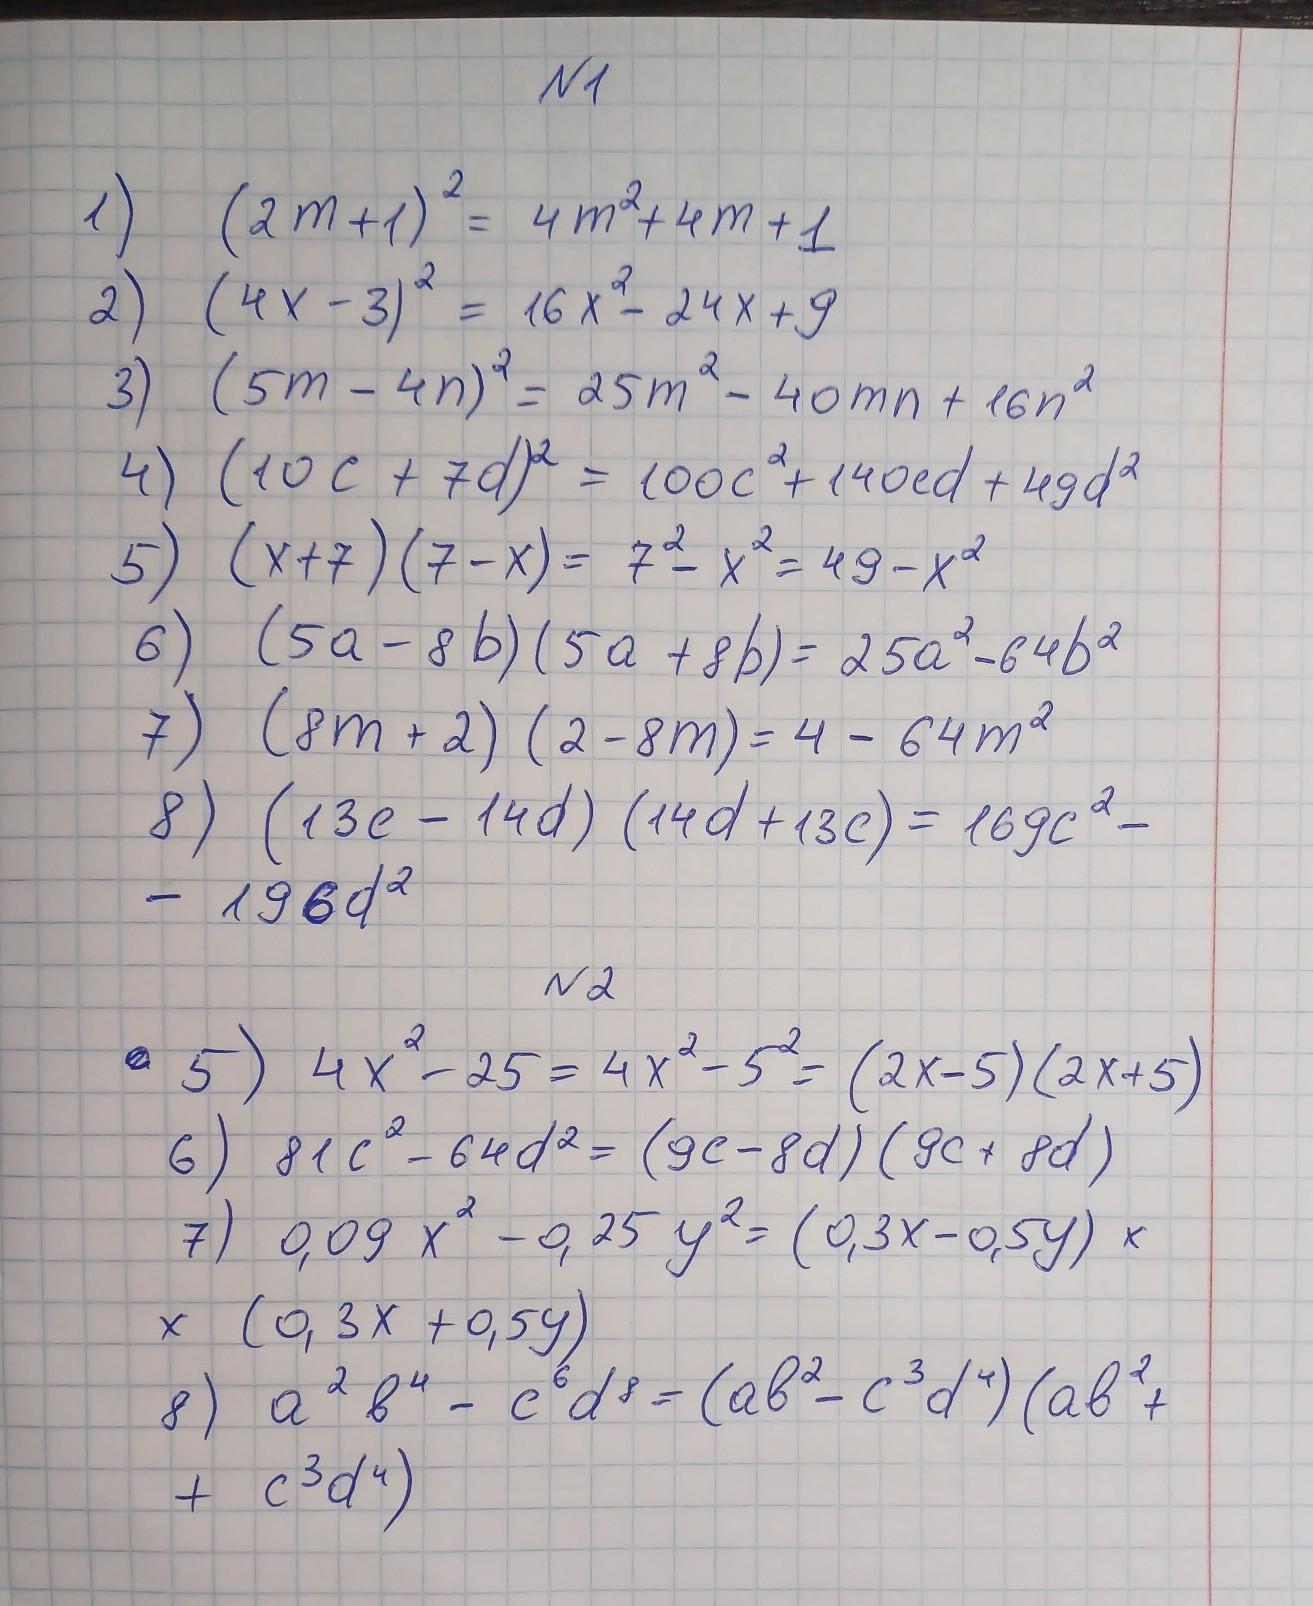 N1
1) (2m+1)² = 4m²+4m+1
2) (4x-3)² = 16x²-24x+9
3) (5m-4n)² = 25m²-40mn+16n²
4) (10c+7d)² = 100c²+140cd+49d²
5) (x+7)(7-x) = 7²-x² = 49-x²
6) (5a-8b)(5a+8b) = 25a²-64b²
7) (8m+2)(2-8m) = 4-64m²
8) (13c-14d)(14d+13c) = 169c²-
- 196d²
N2
5) 4x²-25 = 4x²-5² = (2x-5)(2x+5)
6) 81c²-64d² = (9c-8d)(9c+8d)
7) 0,09x²-0,25y² = (0,3x-0,5y) ×
× (0,3x+0,5y)
8) a²b⁴-c⁶d⁸ = (ab²-c³d⁴)(ab²+
+ c³d⁴)